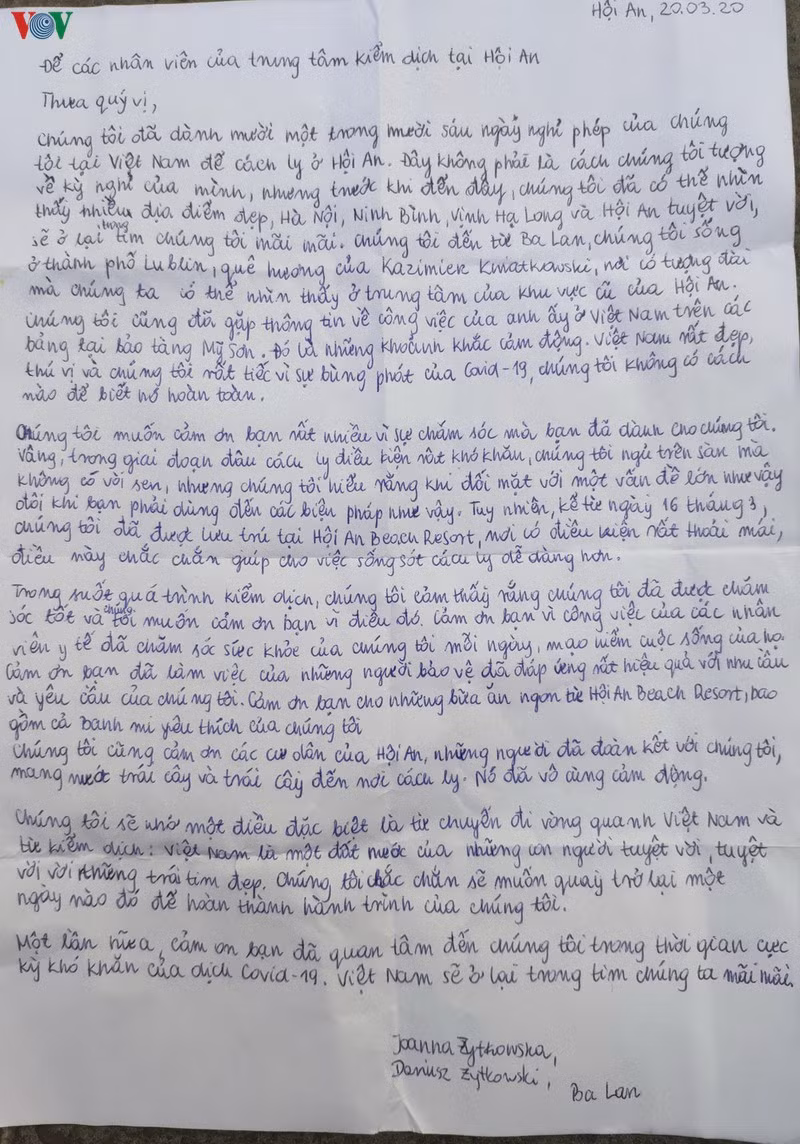 VOV
Hội An, 20.03.20
Để các nhân viên của trung tâm kiểm dịch tại Hội An
Thưa quý vị,
Chúng tôi đã dành mười một trong mười sáu ngày nghỉ phép của chúng
tôi tại Việt Nam để cách ly ở Hội An. Đây không phải là cách chúng tôi tượng
về kỳ nghỉ của mình, nhưng trước khi đến đây, chúng tôi đã có thể nhìn
thấy nhiều địa điểm đẹp, Hà Nội, Ninh Bình, Vịnh Hạ Long và Hội An tuyệt vời,
sẽ ở lại trong tim chúng tôi mãi mãi. Chúng tôi đến từ Ba Lan, chúng tôi sống
ở thành phố Lublin, quê hương của Kazimier Kwiatkowski, nơi có tượng đài
mà chúng ta có thể nhìn thấy ở trung tâm của khu vực cũ của Hội An.
Chúng tôi cũng đã gặp thông tin về công việc của anh ấy ở Việt Nam trên các
bảng tại bảo tàng Mỹ Sơn. Đó là những khoảnh khắc cảm động. Việt Nam rất đẹp,
thú vị và chúng tôi rất tiếc vì sự bùng phát của Covid-19, chúng tôi không có cách
nào để biết nó hoàn toàn.
Chúng tôi muốn cảm ơn bạn rất nhiều vì sự chăm sóc mà bạn đã dành cho chúng tôi.
Vâng, trong giai đoạn đầu cách ly điều kiện rất khó khăn, chúng tôi ngủ trên sàn mà
không có vòi sen, nhưng chúng tôi hiểu rằng khi đối mặt với một vấn đề lớn như vậy
đôi khi bạn phải dùng đến các biện pháp như vậy. Tuy nhiên, kể từ ngày 16 tháng 3,
chúng tôi đã được lưu trú tại Hội An Beach Resort, nơi có điều kiện rất thoải mái,
điều này chắc chắn giúp cho việc sống sót cách ly dễ dàng hơn.
Trong suốt quá trình kiểm dịch, chúng tôi cảm thấy rằng chúng tôi đã được chăm
sóc tốt và chúng tôi muốn cảm ơn bạn vì điều đó. Cảm ơn bạn vì công việc của các nhân
viên y tế đã chăm sóc sức khỏe của chúng tôi mỗi ngày, mạo hiểm cuộc sống của họ.
Cảm ơn bạn đã làm việc của những người bảo vệ đã đáp ứng rất hiệu quả với nhu cầu
và yêu cầu của chúng tôi. Cảm ơn bạn cho những bữa ăn ngon từ Hội An Beach Resort, bao
gồm cả banh mi yêu thích của chúng tôi
Chúng tôi cũng cảm ơn các cư dân của Hội An, những người đã đoàn kết với chúng tôi,
mang nước trái cây và trái cây đến nơi cách ly. Nó đã vô cùng cảm động.
Chúng tôi sẽ nhớ một điều đặc biệt là từ chuyến đi vòng quanh Việt Nam và
từ kiểm dịch: Việt Nam là một đất nước của những con người tuyệt vời, tuyệt
vời với những trái tim đẹp. Chúng tôi chắc chắn sẽ muốn quay trở lại một
ngày nào đó để hoàn thành hành trình của chúng tôi.
Một lần nữa, cảm ơn bạn đã quan tâm đến chúng tôi trong thời gian cực
kỳ khó khăn của dịch Covid-19. Việt Nam sẽ ở lại trong tim chúng ta mãi mãi.
Joanna Żytkowska,
Dariusz Żytkowski,
Ba Lan